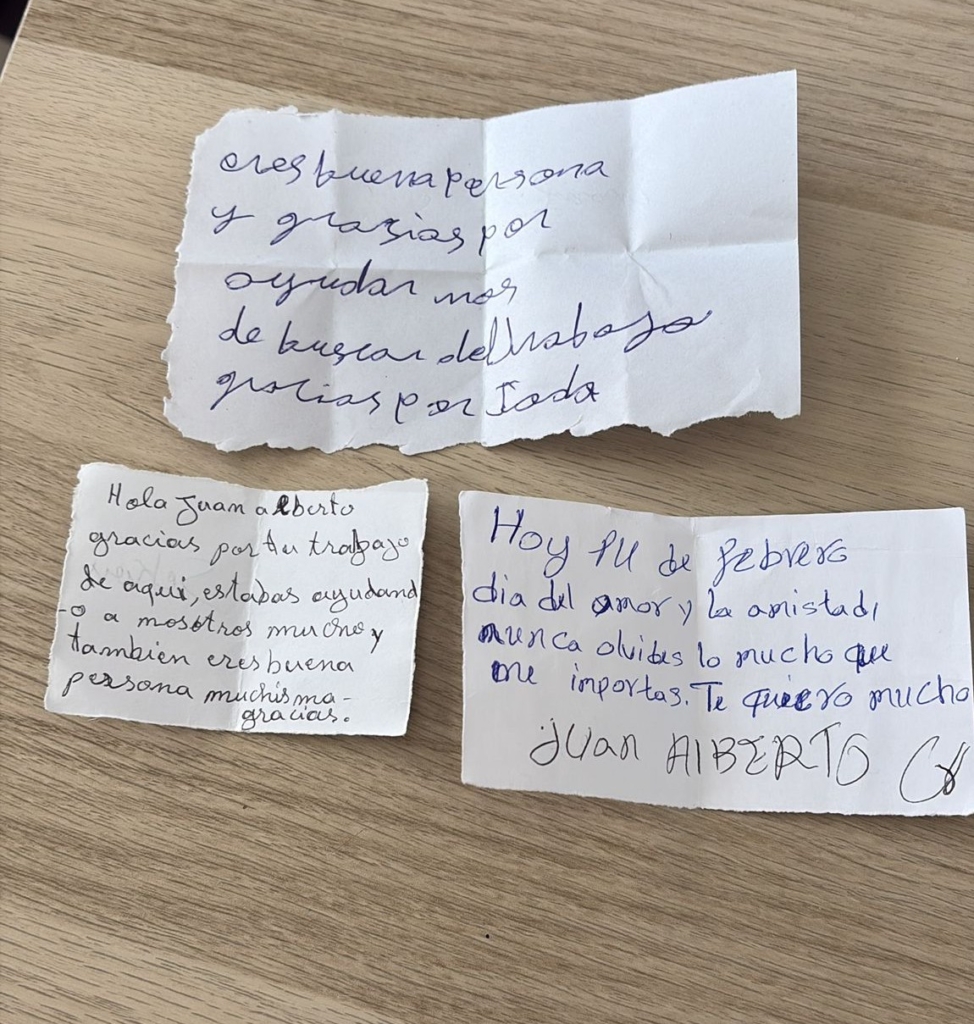 eres buena persona
y grasias por
ayudar nos
de buscar del trabajo
gracias por Toda
Hola Juan alberto
gracias por tu trabajo
de aqui, estabas ayudand
-o a nosotros mucho y
tambien eres buena
persona muchisma-
gracias.
Hoy 14 de febrero
dia del amor y la amistad,
nunca olvides lo mucho que
me importas. Te quiero mucho
Juan AlBERTO